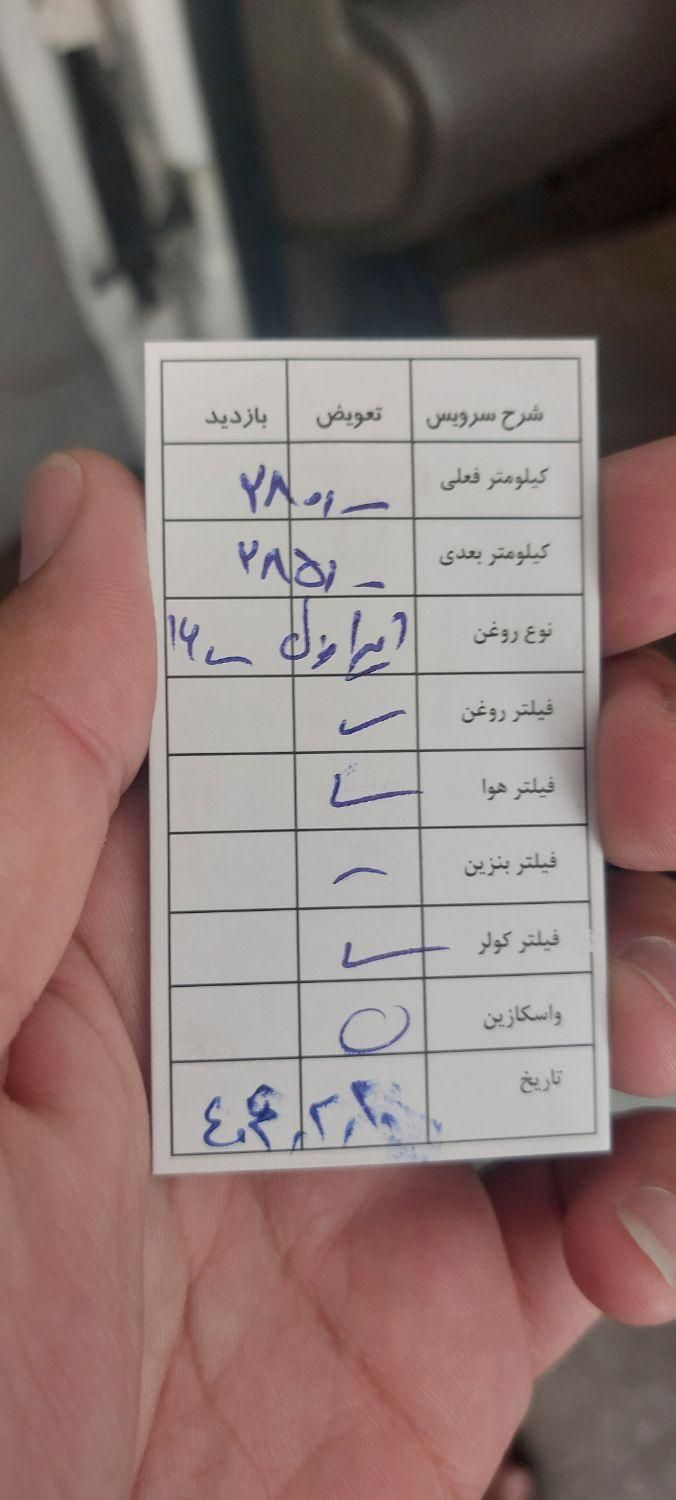 شرح سرویس تعویض بازدید
کیلومتر فعلی
کیلومتر بعدی
نوع روغن ایرانول
فیلتر روغن
فیلتر هوا
فیلتر بنزین
فیلتر کولر
واسکازین
تاریخ